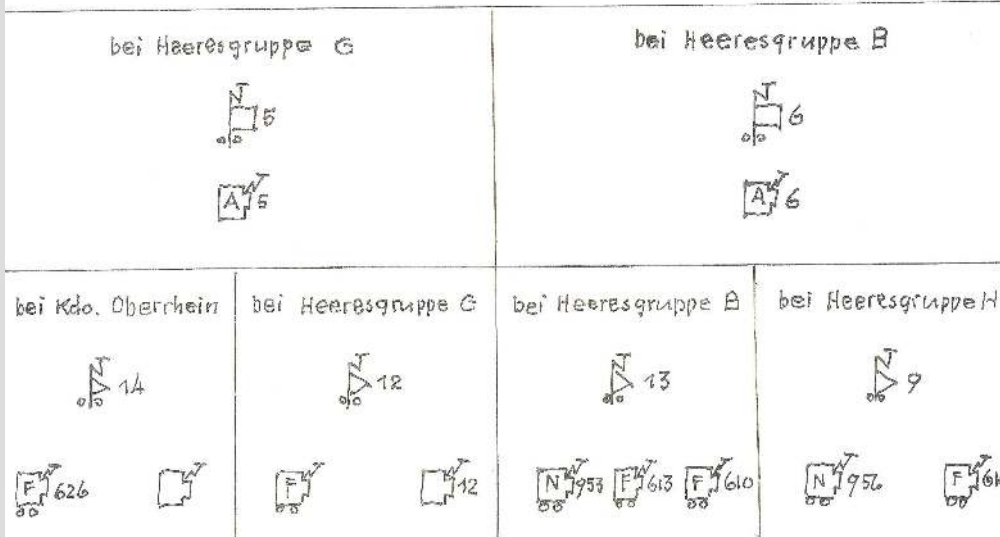 bei Heeresgruppe G
5
A 5
bei Heeresgruppe B
6
A 6
bei Kdo. Oberrhein
14
F 626
bei Heeresgruppe G
12
F
12
bei Heeresgruppe B
13
N 953 F 613 F 610
bei Heeresgruppe H
9
N 956 F